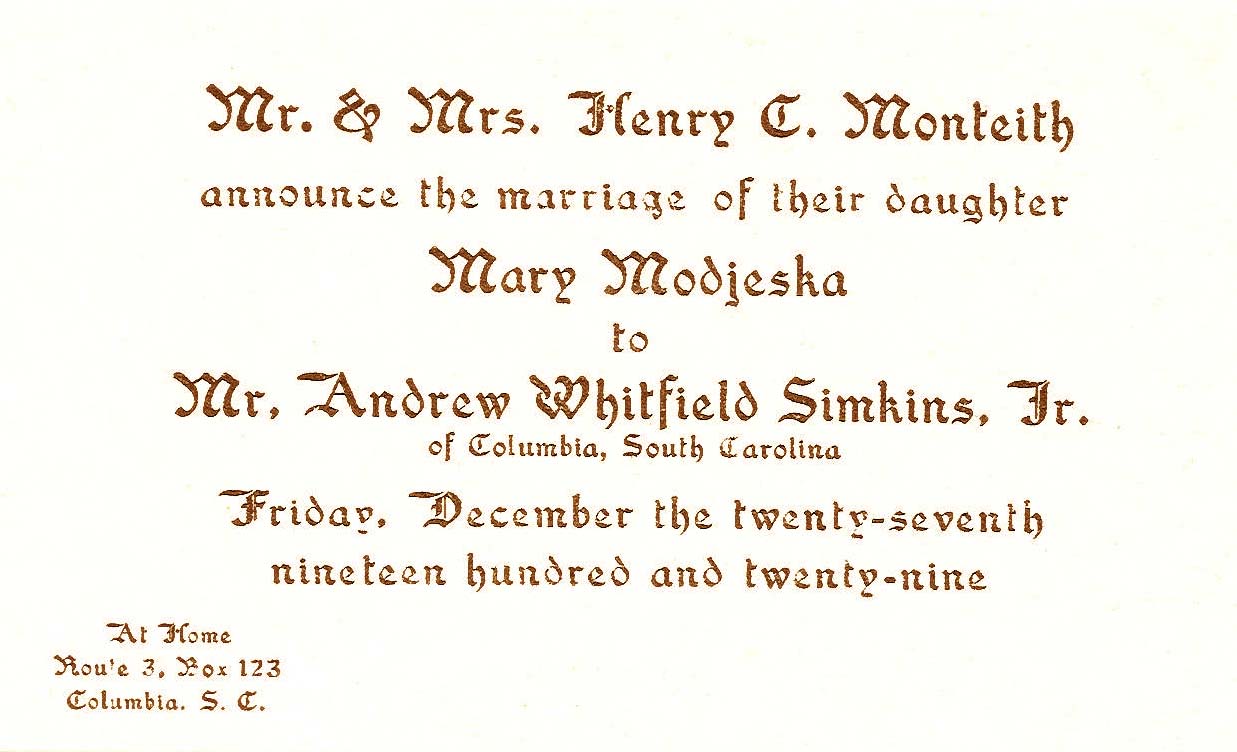 Mr. & Mrs. Henry C. Monteith
announce the marriage of their daughter
Mary Modjeska
to
Mr. Andrew Whitfield Simkins, Jr.
of Columbia, South Carolina
Friday, December the twenty-seventh
nineteen hundred and twenty-nine
At Home
Route 3, Box 123
Columbia, S. C.